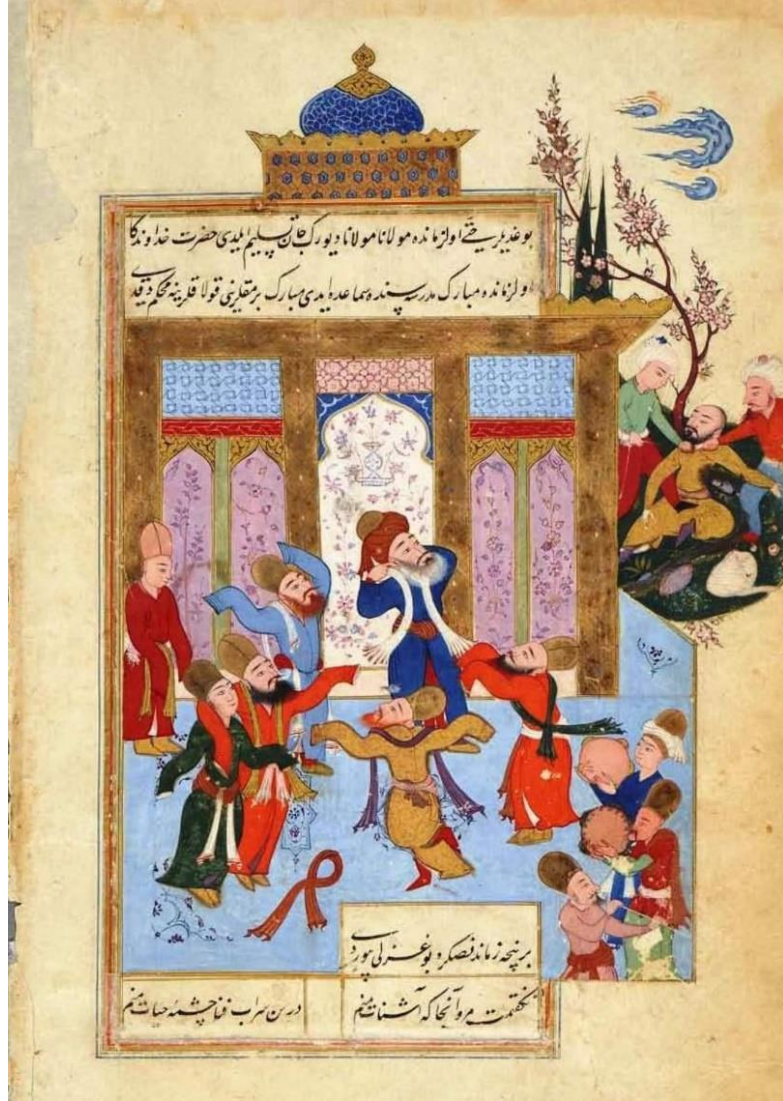 بوغدیلر حتی اولزمانده مولانا مولانا دیورک جان تسلیم ایلدی حضرت خداوندکار
اولزمانده مبارک مدرسه سنده سماعده ایدی مبارک برمقلرینی قولاقلرینه محکم دقدی
بر نیچه زماندنصکره بو غزلی بیوردی
نگفتمت مرو آنجا که آشنات منم درین سراب فنا چشمهٔ حیات منم